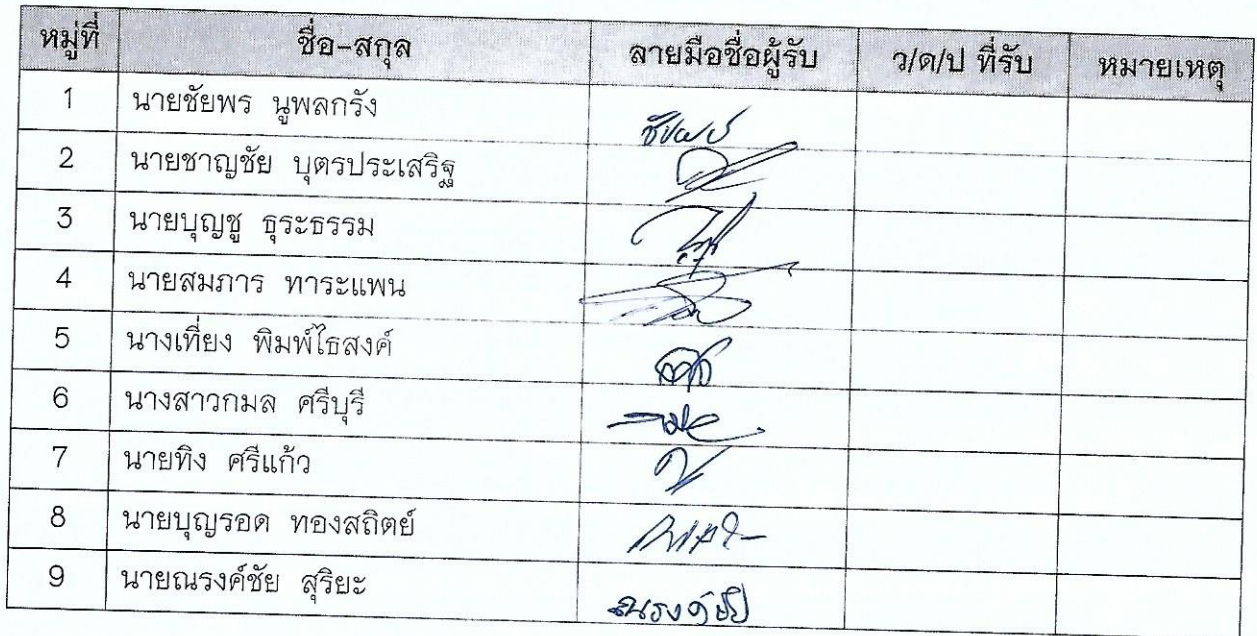 หมู่ที่ ชื่อ-สกุล ลายมือชื่อผู้รับ ว/ด/ป ที่รับ หมายเหตุ
1 นายชัยพร นูพลกรัง ชัยพร
2 นายชาญชัย บุตรประเสริฐ
3 นายบุญชู ธุระธรรม
4 นายสมภาร ทาระแพน
5 นางเที่ยง พิมพ์ไธสงค์
6 นางสาวกมล ศรีบุรี
7 นายทิง ศรีแก้ว
8 นายบุญรอด ทองสถิตย์
9 นายณรงค์ชัย สุริยะ ณรงค์ชัย